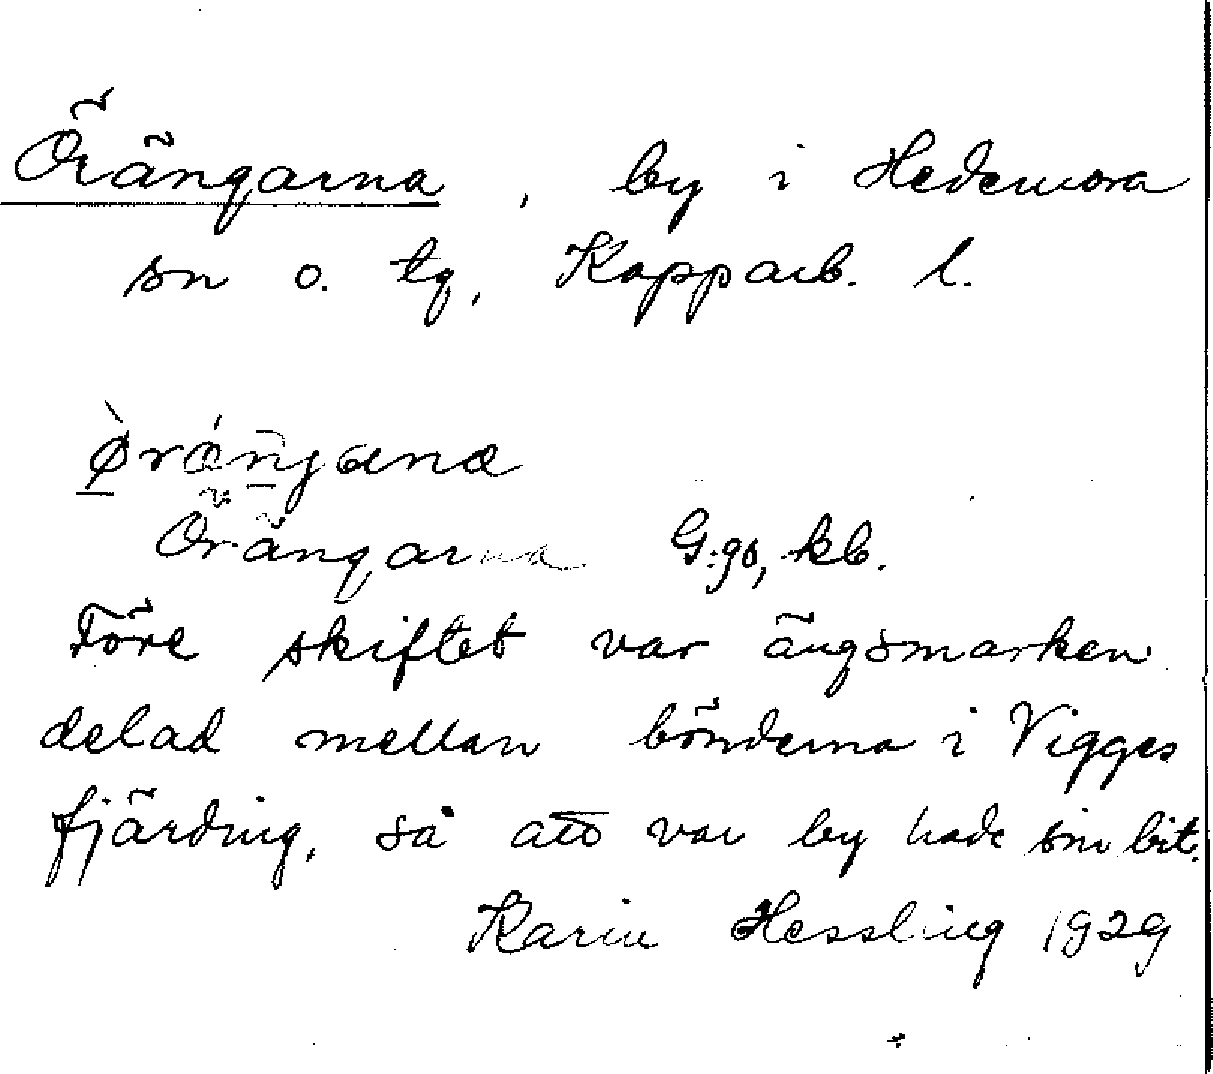 Örängarna, by i Hedemora
sn o. tg, Kopparb. l.
Örängarna G:gs, kb.
Före skiftet var ängsmarken
delad mellan bönderna i Vigges
fjärding, så att var by hade sin bit.
Karin Hessling 1929